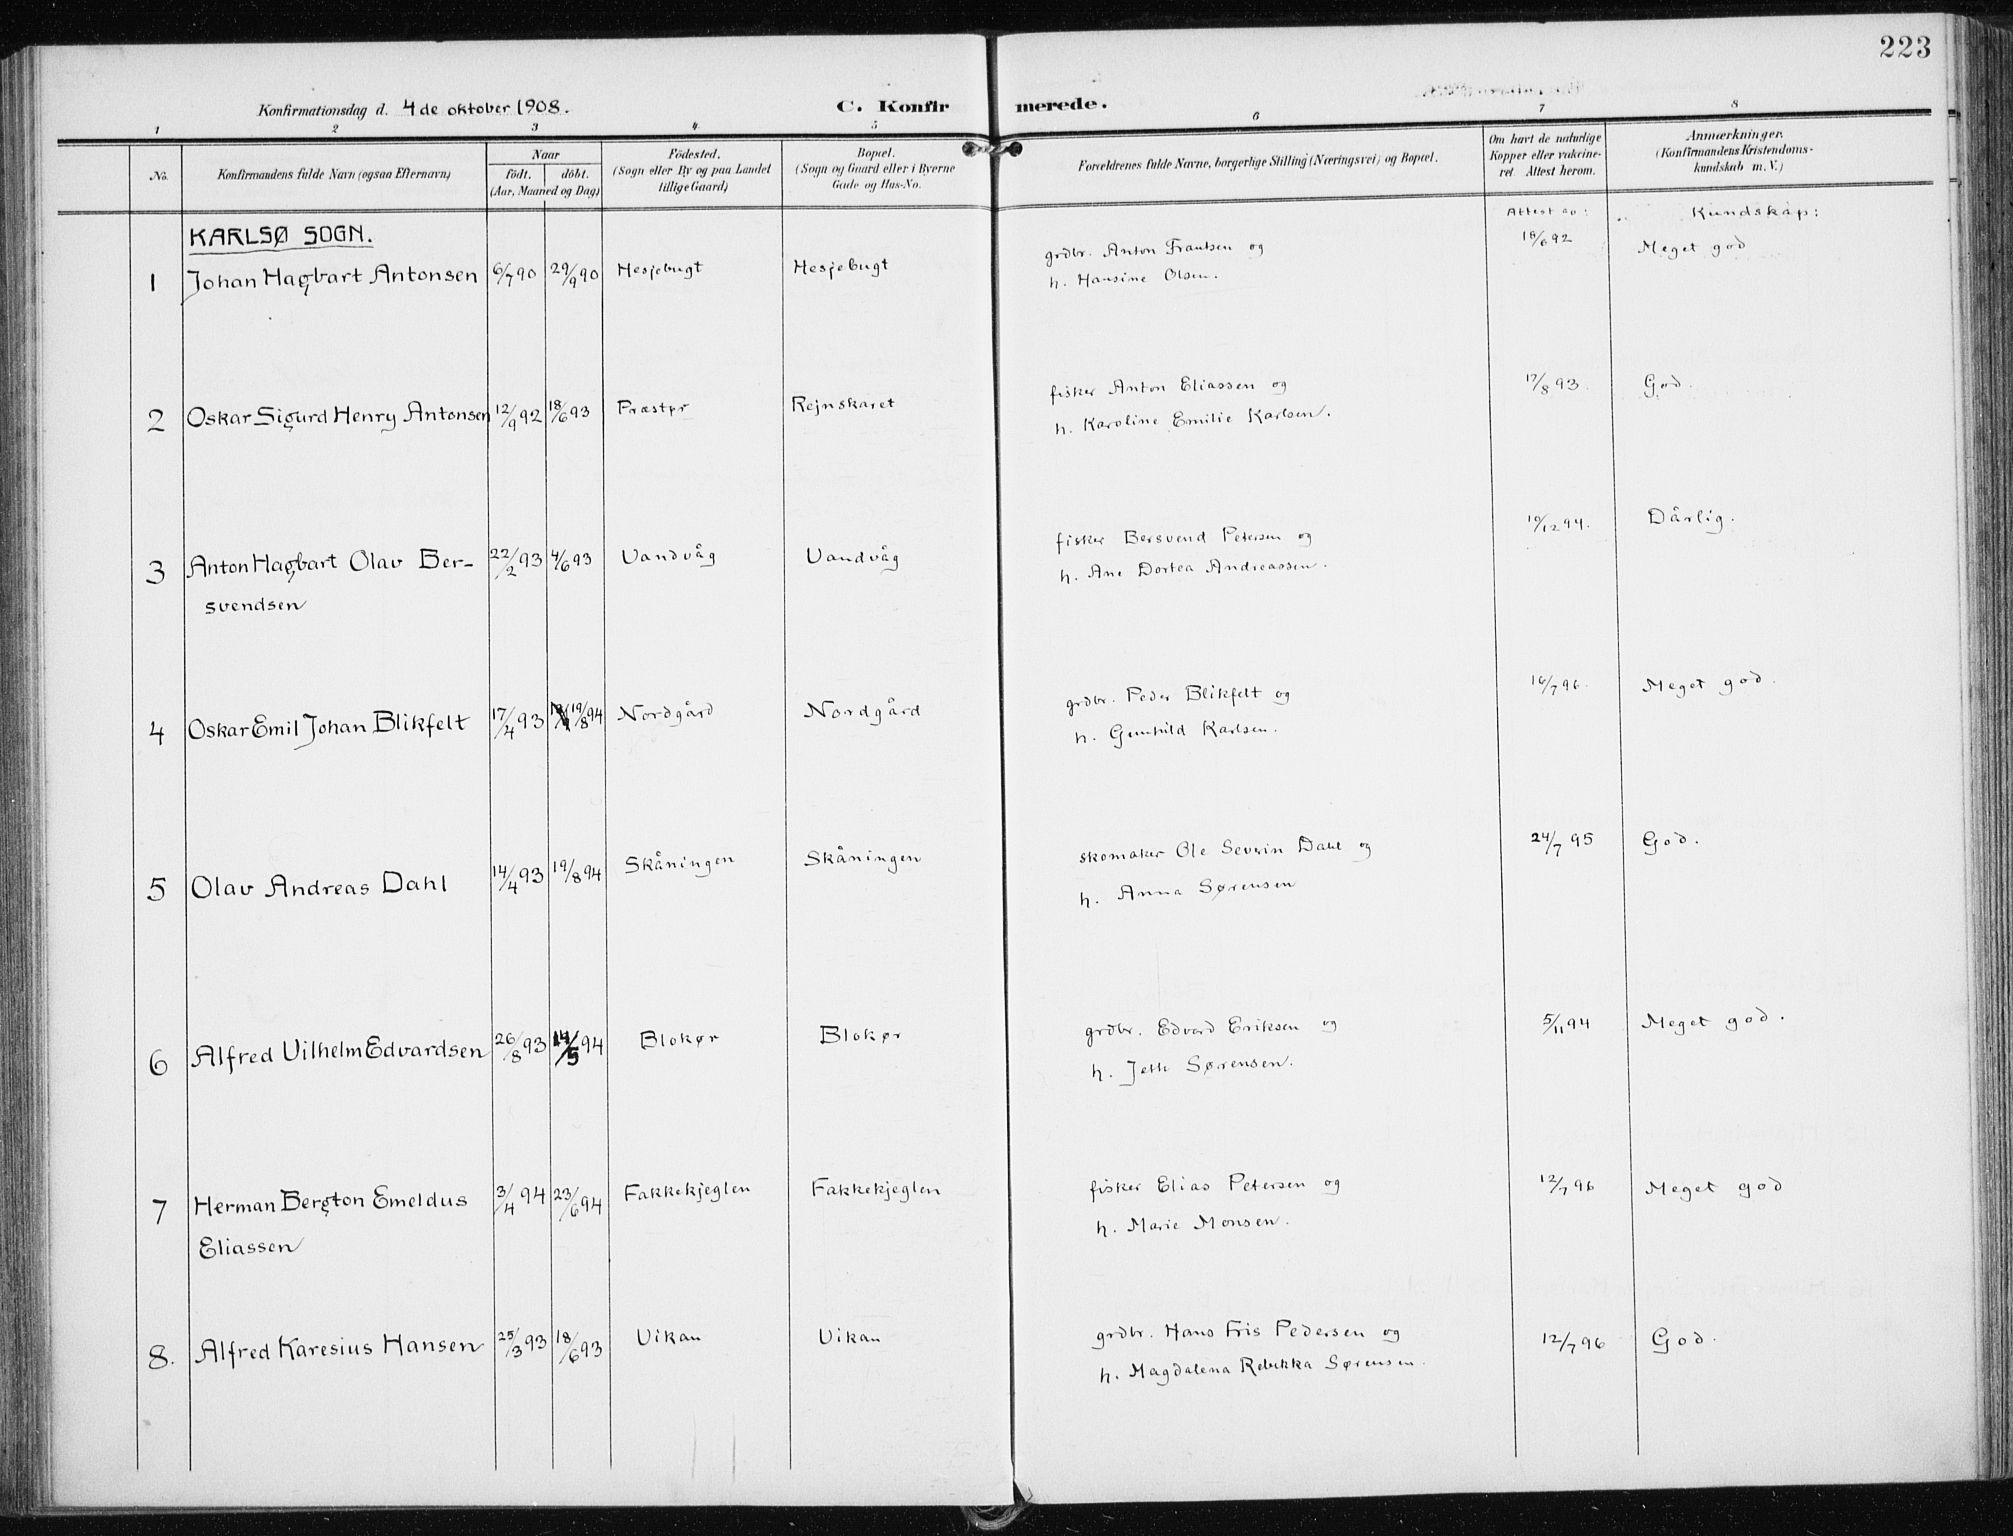 223
Konfirmationsdag d. 4de oktober 1908. C. Konfirmerede.
1 2 3 4 5 6 7 8
No. Konfirmandens fulde Navn (ogsaa Efternavn) Naar födt. döbt. (Aar, Maaned og Dag) Födested. (Sogn eller By og paa Landet tillige Gaard) Bopæl. (Sogn og Gaard eller i Byerne Gade og Hus-No. Forældrenes fulde Navne, borgerlige Stilling (Næringsvei) og Bopæl. Om havt de naturlige Kopper eller vakcineret. Attest herom. Anmærkninger. (Konfirmandens Kristendomskundskab m. V.)
KARLSØ SOGN. Attest av: Kundskap:
1 Johan Hagbart Antonsen 6/7 90 29/9 90 Hesjebugt Hesjebugt grdbr. Anton Frantsen og 18/6 92 Meget god
h. Hansine Olsen.
2 Oskar Sigurd Henry Antonsen 12/9 92 18/6 93 Præstør Rejnskaret fisker Anton Eliassen og 17/8 93. God.
h. Karoline Emilie Karlsen.
3 Anton Hagbart Olav Ber- 22/2 93 4/6 93 Vandvåg Vandvåg fisker Bersvend Petersen og 10/12 94. Dårlig.
svendsen h. Ane Dortea Andreassen.
4 Oskar Emil Johan Blikfelt 17/4 93 19/8 94 Nordgård Nordgård grdbr. Peder Blikfelt og 16/7 96. Meget god.
h. Gunhild Karlsen.
5 Olav Andreas Dahl 14/4 93 19/8 94 Skåningen Skåningen skomaker Ole Severin Dahl og 24/7 95 God.
h. Anna Sørensen
6 Alfred Vilhelm Edvardsen 26/8 93 14/5 94 Blokør Blokør grdbr. Edvard Eriksen og 5/11 94 Meget god.
h. Jette Sørensen.
7 Herman Bergton Emeldus 3/4 94 23/6 94 Fakkekjeglen Fakkekjeglen fisker Elias Petersen og 12/7 96 Meget god
Eliassen h. Marie Monsen.
8. Alfred Karesius Hansen 25/3 93 18/6 93 Vikan Vikan grdbr. Hans Fris Pedersen og 12/7 96 God.
h. Magdalena Rebekka Sørensen.